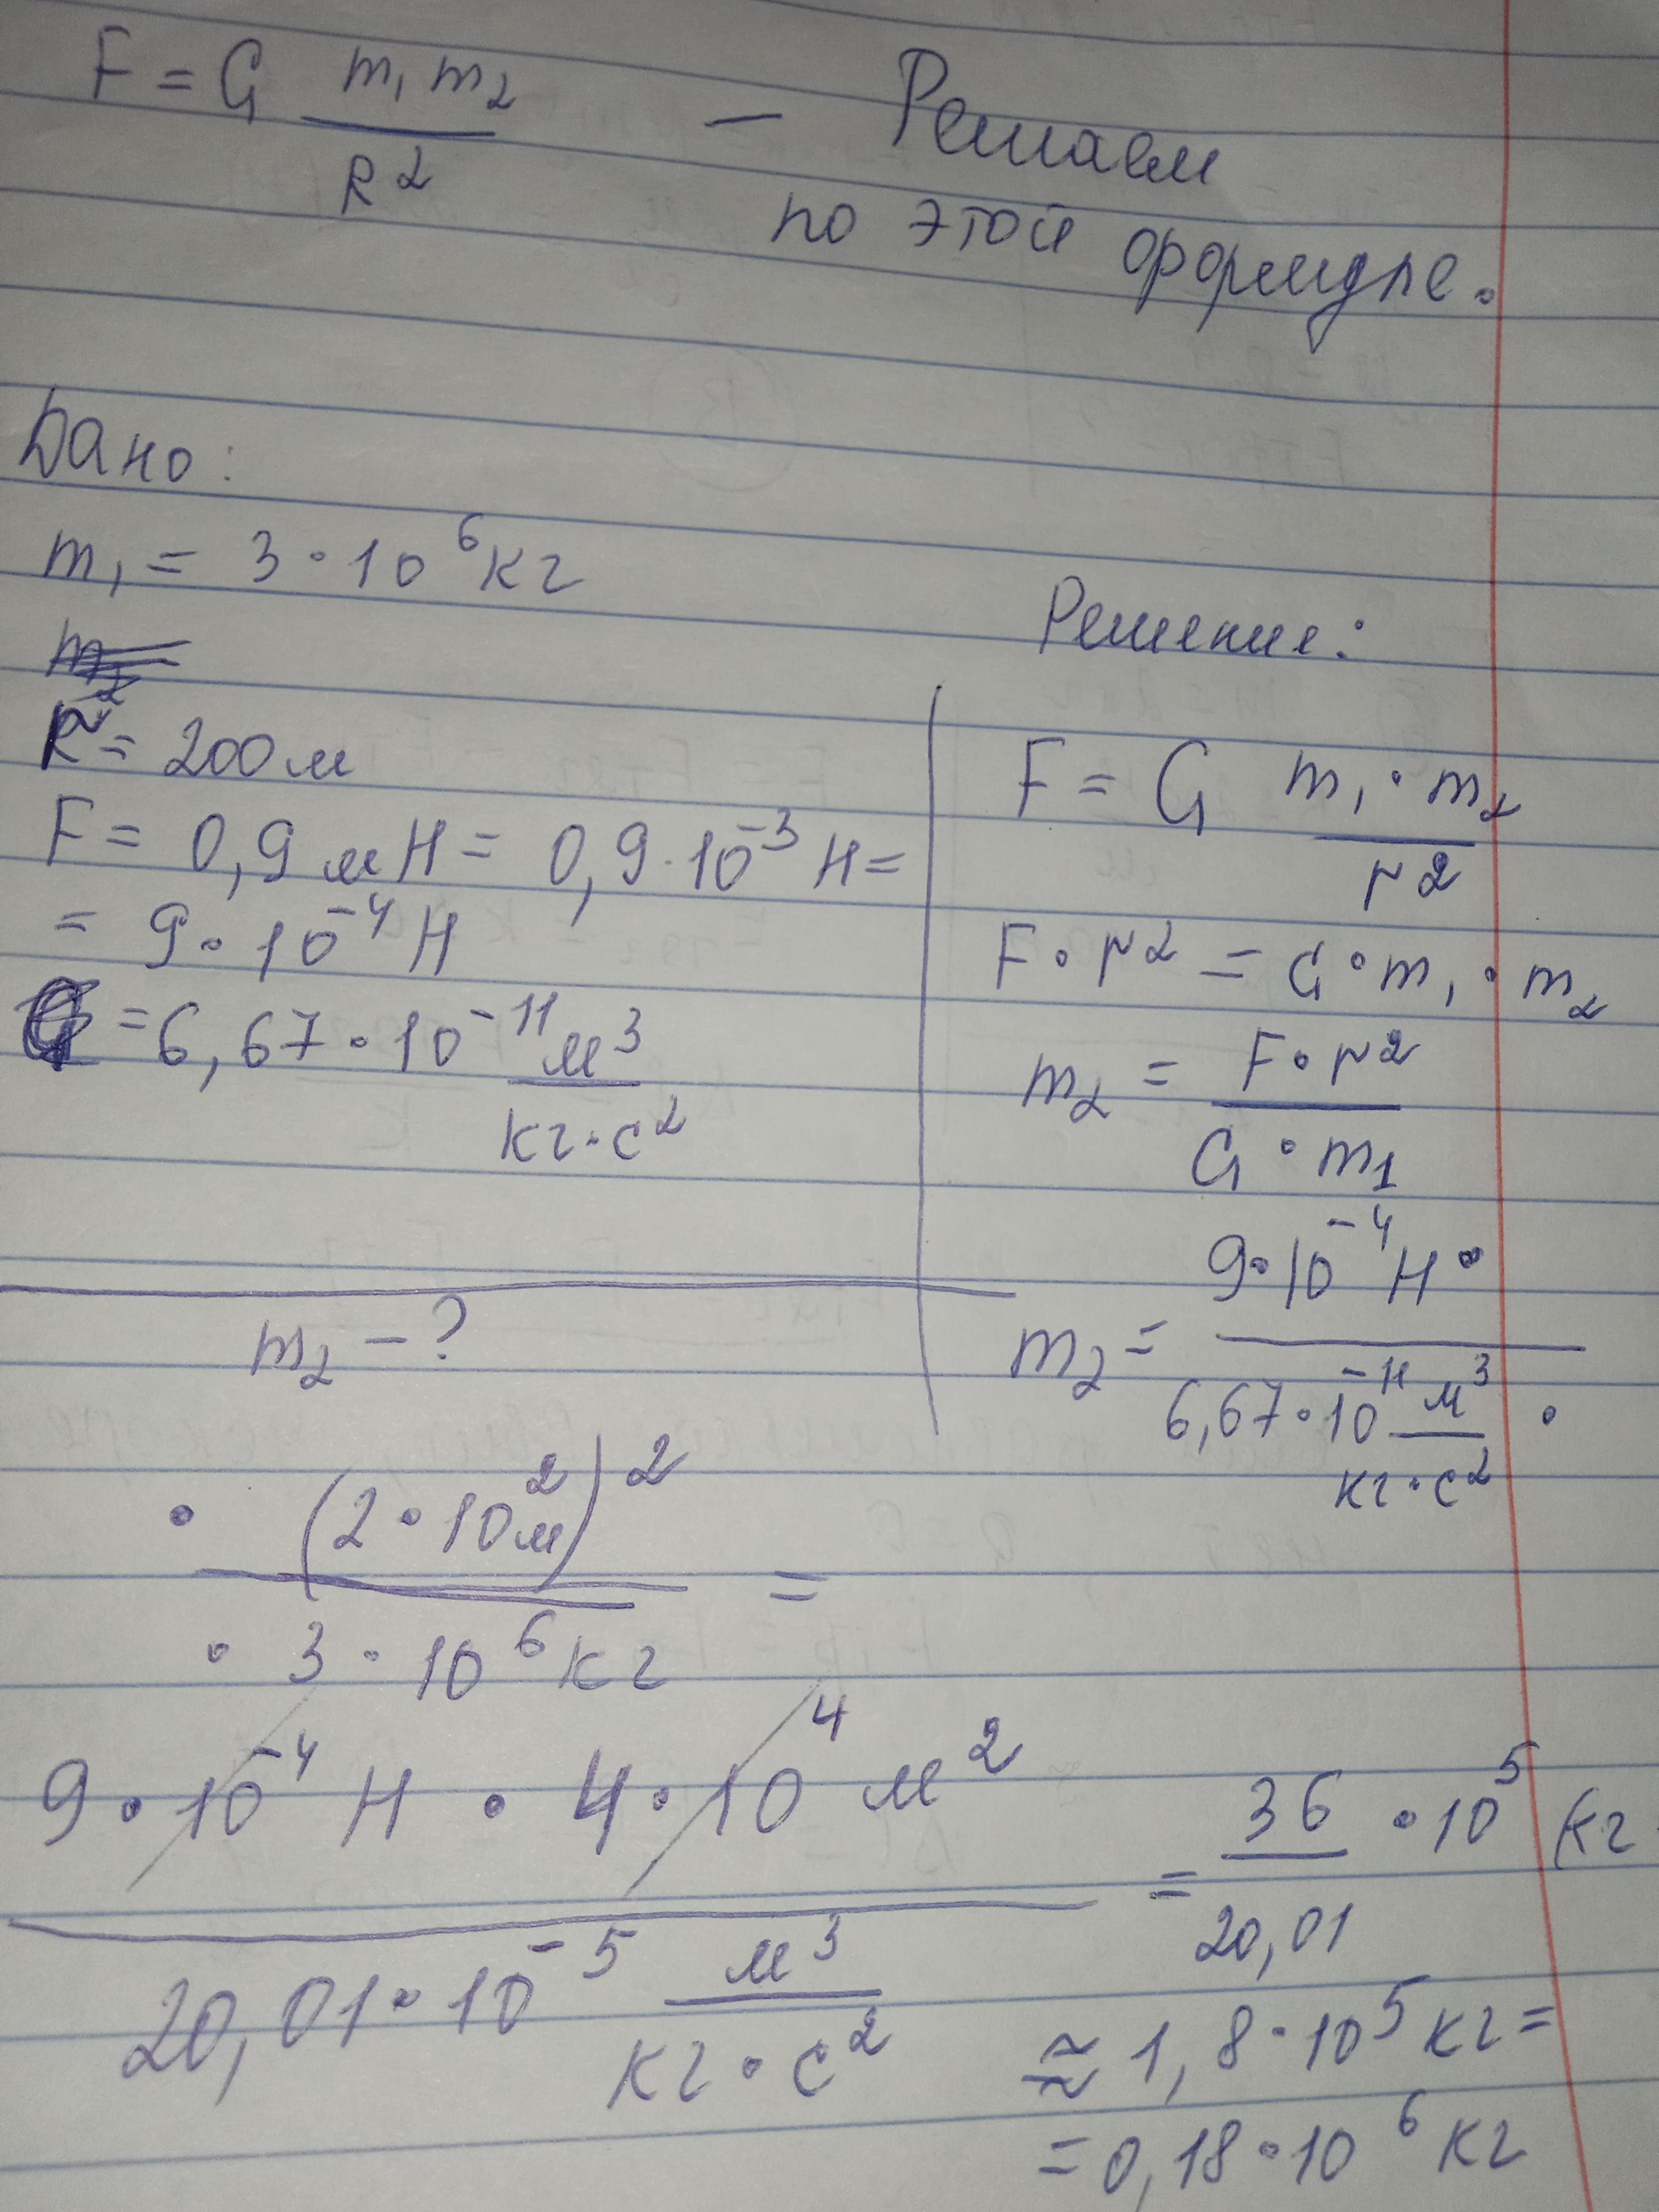 F = G m₁ m₂ / R² — Решаем
по этой формуле.
Дано:
m₁ = 3 · 10⁶ кг
r = 200 м
F = 0,9 мН = 0,9 · 10⁻³ Н =
= 9 · 10⁻⁴ Н
G = 6,67 · 10⁻¹¹ м³ / кг · с²
m₂ – ?
Решение:
F = G m₁ · m₂ / r²
F · r² = G · m₁ · m₂
m₂ = F · r² / G · m₁
m₂ = 9 · 10⁻⁴ Н · / 6,67 · 10⁻¹¹ м³ / кг · с² ·
· (2 · 10² м)² / · 3 · 10⁶ кг =
9 · 10⁻⁴ Н · 4 · 10⁴ м² / 20,01 · 10⁻⁵ м³ / кг · с² = 36 / 20,01 · 10⁵ кг
≈ 1,8 · 10⁵ кг =
= 0,18 · 10⁶ кг